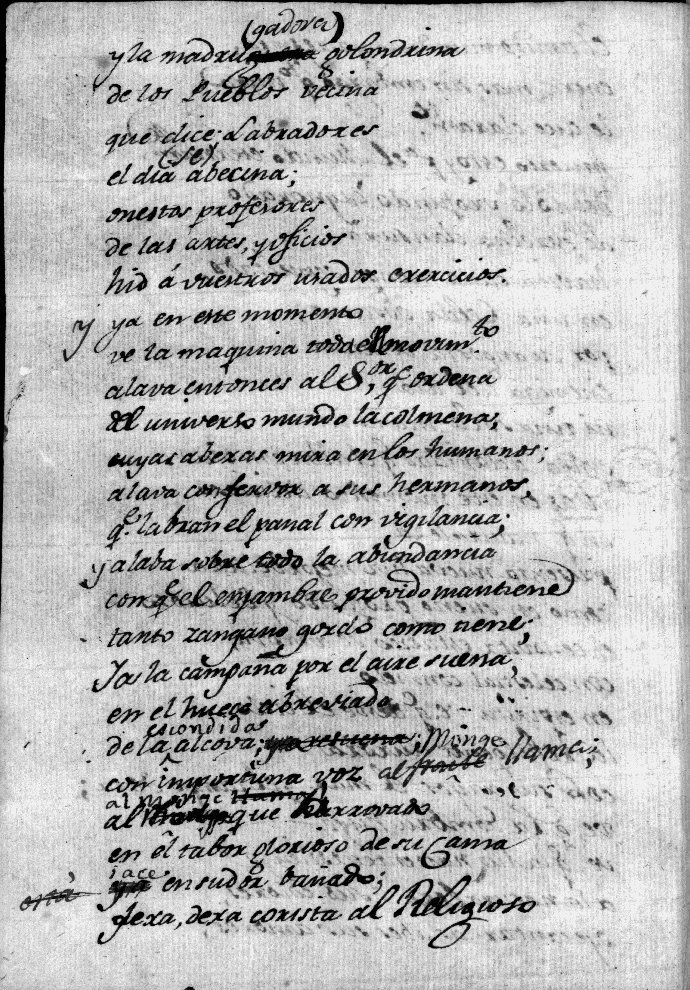 (gadora)
y la madru golondrina
de los Pueblos vecina
que dice: Labradores
(se)
el dia abecina;
onestos profesores
de las artes, y oficios
hid á vuestros usados exercicios.
y ya en este momento
ve la maquina toda en movimto
alava entonces al Sor, q.e ordena
del universo mundo la colmena;
cuyas aberas mira en los humanos;
alava con fervor a sus hermanos,
q.e labran el panal con vigilancia;
y alaba sobre todo la abundancia
con q.e el enjambre provido mantiene
tanto zangano gordo como tiene;
Ya la campaña por el aire suena,
en el hueco abreviado
escondidas
de la alcova; ya resuena; Monge llama;
con importuna voz al fraile
al Monge llama
al que harrovado
en el tabor glorioso de su Cama
jace
está ya en sudor bañado;
dexa, dexa corista al Religioso